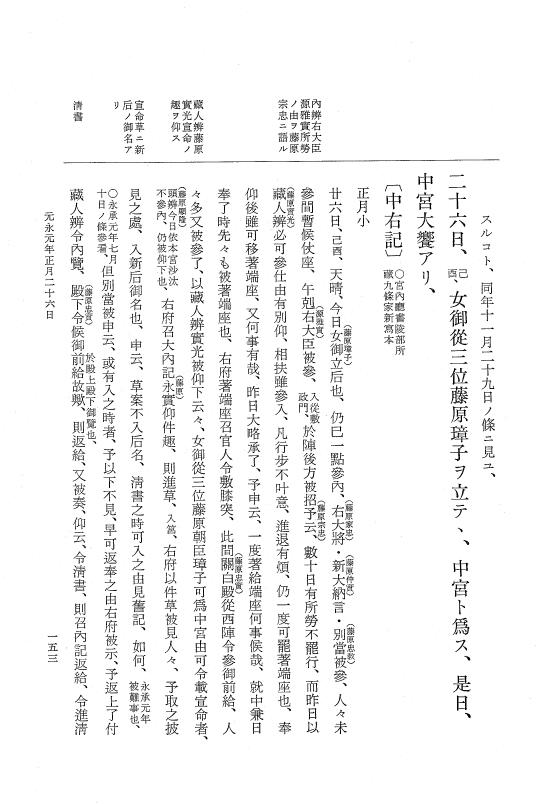 スルコト、同年十一月二十九日ノ條ニ見ユ、
二十六日、己酉、女御從三位藤原璋子ヲ立テヽ、中宮ト爲ス、是日、
中宮大饗アリ、
〔中右記〕○宮内廳書陵部所藏九條家新寫本
正月小
廿六日、己酉、天晴、今日女御立后也、(藤原璋子)仍巳一點參内、右大將・(藤原家忠)新大納言・(藤原仲實)別當被參、(藤原忠教)人々未
參間暫候仗座、午剋右大臣被參、(源雅實)入從敷政門、於陣後方被招予云、(藤原宗忠)數十日有所勞不罷行、而昨日以
藏人辨(藤原實光)必可參仕由有別仰、相扶雖參入、凡行步不叶意、進退有煩、仍一度可罷著端座也、奉
仰後雖可移著端座、又何事有哉、昨日大略承了、予申云、一度著給端座何事候哉、就中兼日
奉了時先々も被著端座也、右府著端座召官人令敷膝突、此間關白殿(藤原忠實)從西陣令參御前給、人
々多又被參了、以藏人辨實光被仰下云々、女御從三位藤原朝臣璋子可爲中宮由可令載宣命者、
頭辨(藤原顯隆)今日依本宮沙汰不參内、仍被仰下也、右府召大内記永實(藤原)仰件趣、則進草、入筥、右府以件草被見人々、予取之披
見之處、入新后御名也、申云、草案不入后名、淸書之時可入之由見舊記、如何、永承元年被難事也、
○永承元年七月十日ノ條參看、但別當被申云、或有入之時者、予以下不見、早可返奉之由右府被示、予返上了付
藏人辨令内覽、殿下令候御前給故歟、(藤原忠實)於殿上殿下御覽也、則返給、又被奏、仰云、令淸書、則召内記返給、令進淸
内辨右大臣
源雅實所勞
ノ由ヲ藤原
宗忠ニ語ル
藏人辨藤原
實光宣命ノ
趣ヲ仰ス
宣命草ニ新
后ノ御名ア
リ
淸書
元永元年正月二十六日
一五三